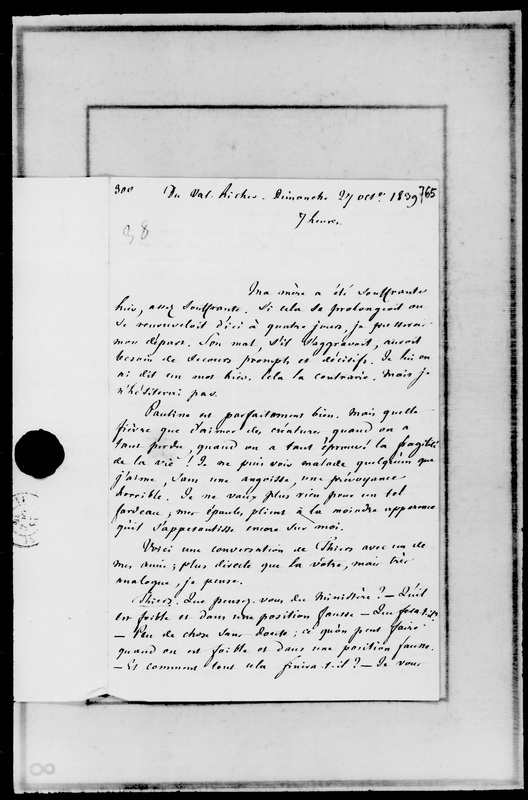 300 Du Val-Richer. Dimanche 27 octe 1839 765
7 heures
38
Ma mère a été souffrante
hier, assez souffrante. Si cela se prolongeoit ou
se renouveloit d'ici à quatre jours, je
mon départ. Son mal, s'il s'aggravoit, auroit
besoin de secours prompts et décisifs. Je lui en
ai dit un mot hier. Cela la contrarie. Mais je
n'hésiterai pas.
Pauline est parfaitement bien. Mais quelle
fièvre que d'aimer des créatures quand on a
tant perdu, quand on a tant éprouvé la fragilité
de la vie ! Je ne puis voir malade quelqu'un que
j'aime, sans une angoisse, une prévoyance
horrible. Je ne vaux plus rien pour un tel
fardeau ; mes épaules plient à la moindre apparence
qu'il s'appesantisse encore sur moi.
Voici une conversation de Thiers avec un de
mes amis ; plus directe que la vôtre, mais très
analogue, je pense.
Thiers. Que pensez-vous du Ministère ? — Qu'il
est foible et dans une position fausse — Que fera-t-il ?
— Peu de chose sans doute ; ce qu'on peut faire
quand on est foible et dans une position fausse.
— Et comment tout cela finira-t-il ? — Je vous